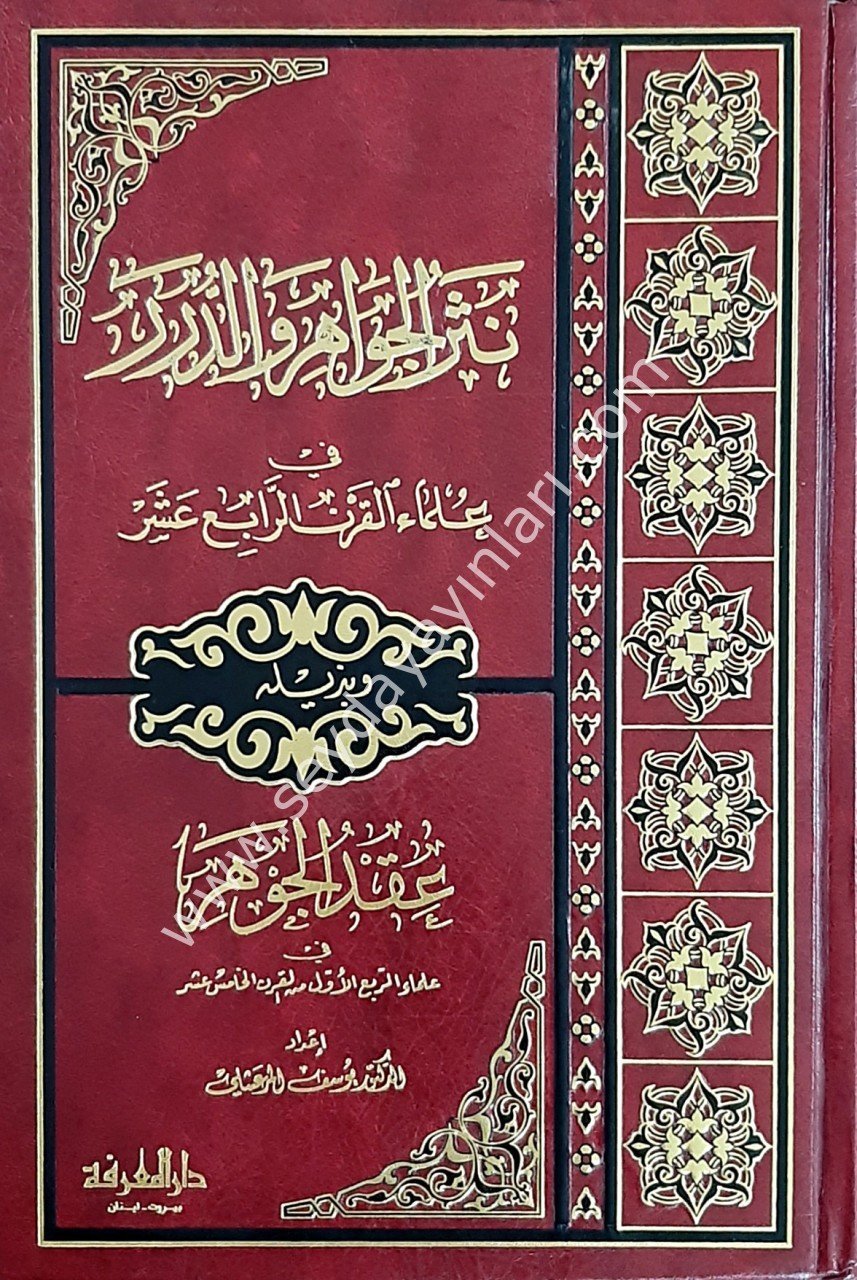 نَثْرُ الجَوَاهِرِ وَالدُّرَرِ
في
عُلَمَاءِ القَرْنِ الرَّابِعَ عَشَرَ
وبذيله
عِقْدُ الجَوْهَرِ
في
علماء الربع الأول من القرن الخامس عشر
إعْدَاد
الدكتور يوسف المرعشلي
دار المعرفة
بيروت - لبنان
www.seydayayinlari.com